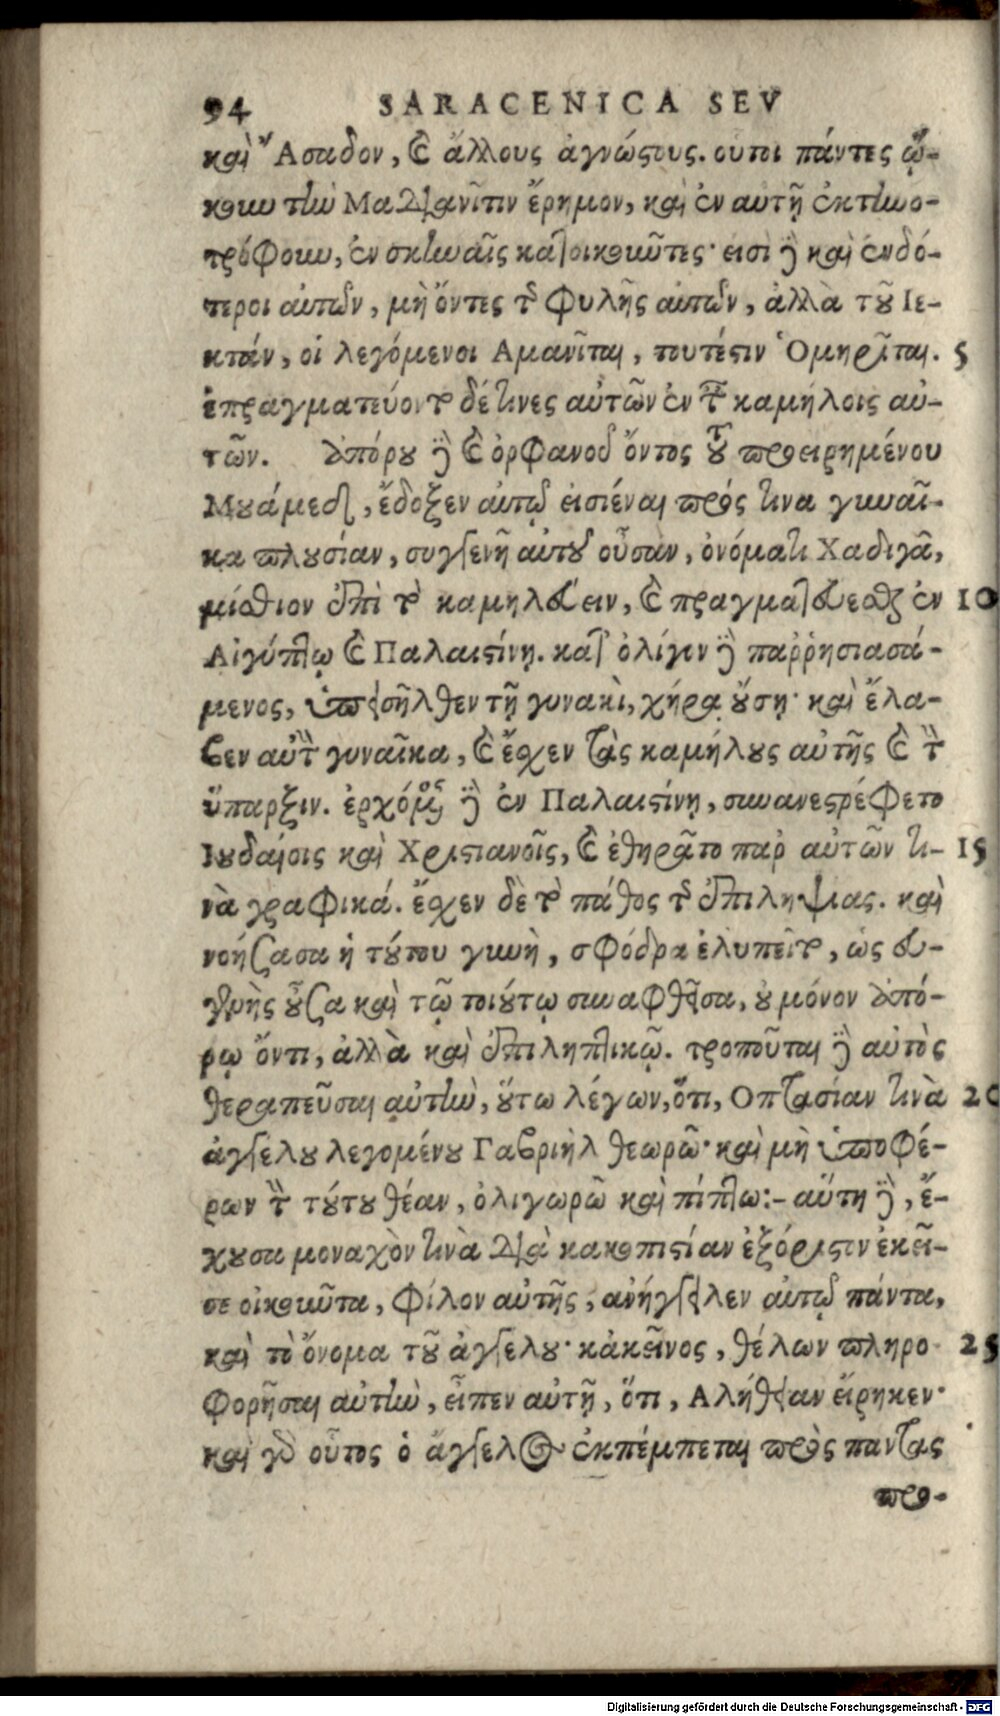 94 SARACENICA SEV
καὶ Ἄσαδον, καὶ ἄλλους ἀγνώστους. οὗτοι πάντες ᾤ-
κουν τὴν Μαδιανῖτιν ἔρημον, καὶ ἐν αὐτῇ ἐκτηνο-
τρόφουν, ἐν σκηναῖς κατοικοῦντες· εἰσὶ δὲ καὶ ἐνδό-
τεροι αὐτῶν, μὴ ὄντες τῆς φυλῆς αὐτῶν, ἀλλὰ τοῦ Ιε-
κτάν, οἱ λεγόμενοι Αμανῖται, τουτέστιν Ὁμηρῖται. 5
ἐπραγματεύοντο δέ τινες αὐτῶν ἐν ταῖς καμήλοις αὐ-
τῶν. ἀπόρου δὲ καὶ ὀρφανοῦ ὄντος τοῦ προειρημένου
Μουάμεδ, ἔδοξεν αὐτῷ εἰσιέναι πρός τινα γυναῖ-
κα πλουσίαν, συγγενῆ αὐτοῦ οὖσαν, ὀνόματι Χαδιγᾶ,
μίσθιον ἐπὶ τὸ καμηλεύειν, καὶ πραγματεύεσθαι ἐν 10
Αἰγύπτῳ καὶ Παλαιστίνῃ. κατ' ὀλίγον δὲ παῤῥησιασά-
μενος, ὑπεισῆλθεν τῇ γυναικὶ, χήρᾳ οὔσῃ· καὶ ἔλα-
βεν αὐτὴν γυναῖκα, καὶ ἔσχεν τὰς καμήλους αὐτῆς καὶ τὴν
ὕπαρξιν. ἐρχόμενος δὲ ἐν Παλαιστίνῃ, συνανεστρέφετο
Ιουδαίοις καὶ Χριστιανοῖς, καὶ ἐθηρᾶτο παρ' αὐτῶν τι- 15
νὰ γραφικά. ἔσχεν δὲ τὸ πάθος τῆς ἐπιληψίας. καὶ
νοήσασα ἡ τούτου γυνὴ, σφόδρα ἐλυπεῖτο, ὡς εὐ-
γενὴς οὖσα καὶ τῷ τοιούτῳ συναφθεῖσα, οὐ μόνον ἀπό-
ρῳ ὄντι, ἀλλὰ καὶ ἐπιληπτικῷ. τροποῦται δὲ αὐτὸς
θεραπεῦσαι αὐτὴν, οὕτω λέγων, ὅτι, Οπτασίαν τινὰ 20
ἀγγέλου λεγομένου Γαβριὴλ θεωρῶ· καὶ μὴ ὑποφέ-
ρων τὴν τούτου θέαν, ὀλιγωρῶ καὶ πίπτω:- αὕτη δὲ, ἔ-
χουσα μοναχὸν τινὰ διὰ κακοπιστίαν ἐξόριστον ἐκεῖ-
σε οἰκοῦντα, φίλον αὐτῆς, ἀνήγγειλεν αὐτῷ πάντα,
καὶ τὸ ὄνομα τοῦ ἀγγέλου· κἀκεῖνος, θέλων πληρο- 25
φορῆσαι αὐτὴν, εἶπεν αὐτῇ, ὅτι, Αλήθειαν εἴρηκεν·
καὶ γὰρ οὗτος ὁ ἄγγελος ἐκπέμπεται πρὸς πάντας
προ-
Digitalisierung gefördert durch die Deutsche Forschungsgemeinschaft - DFG